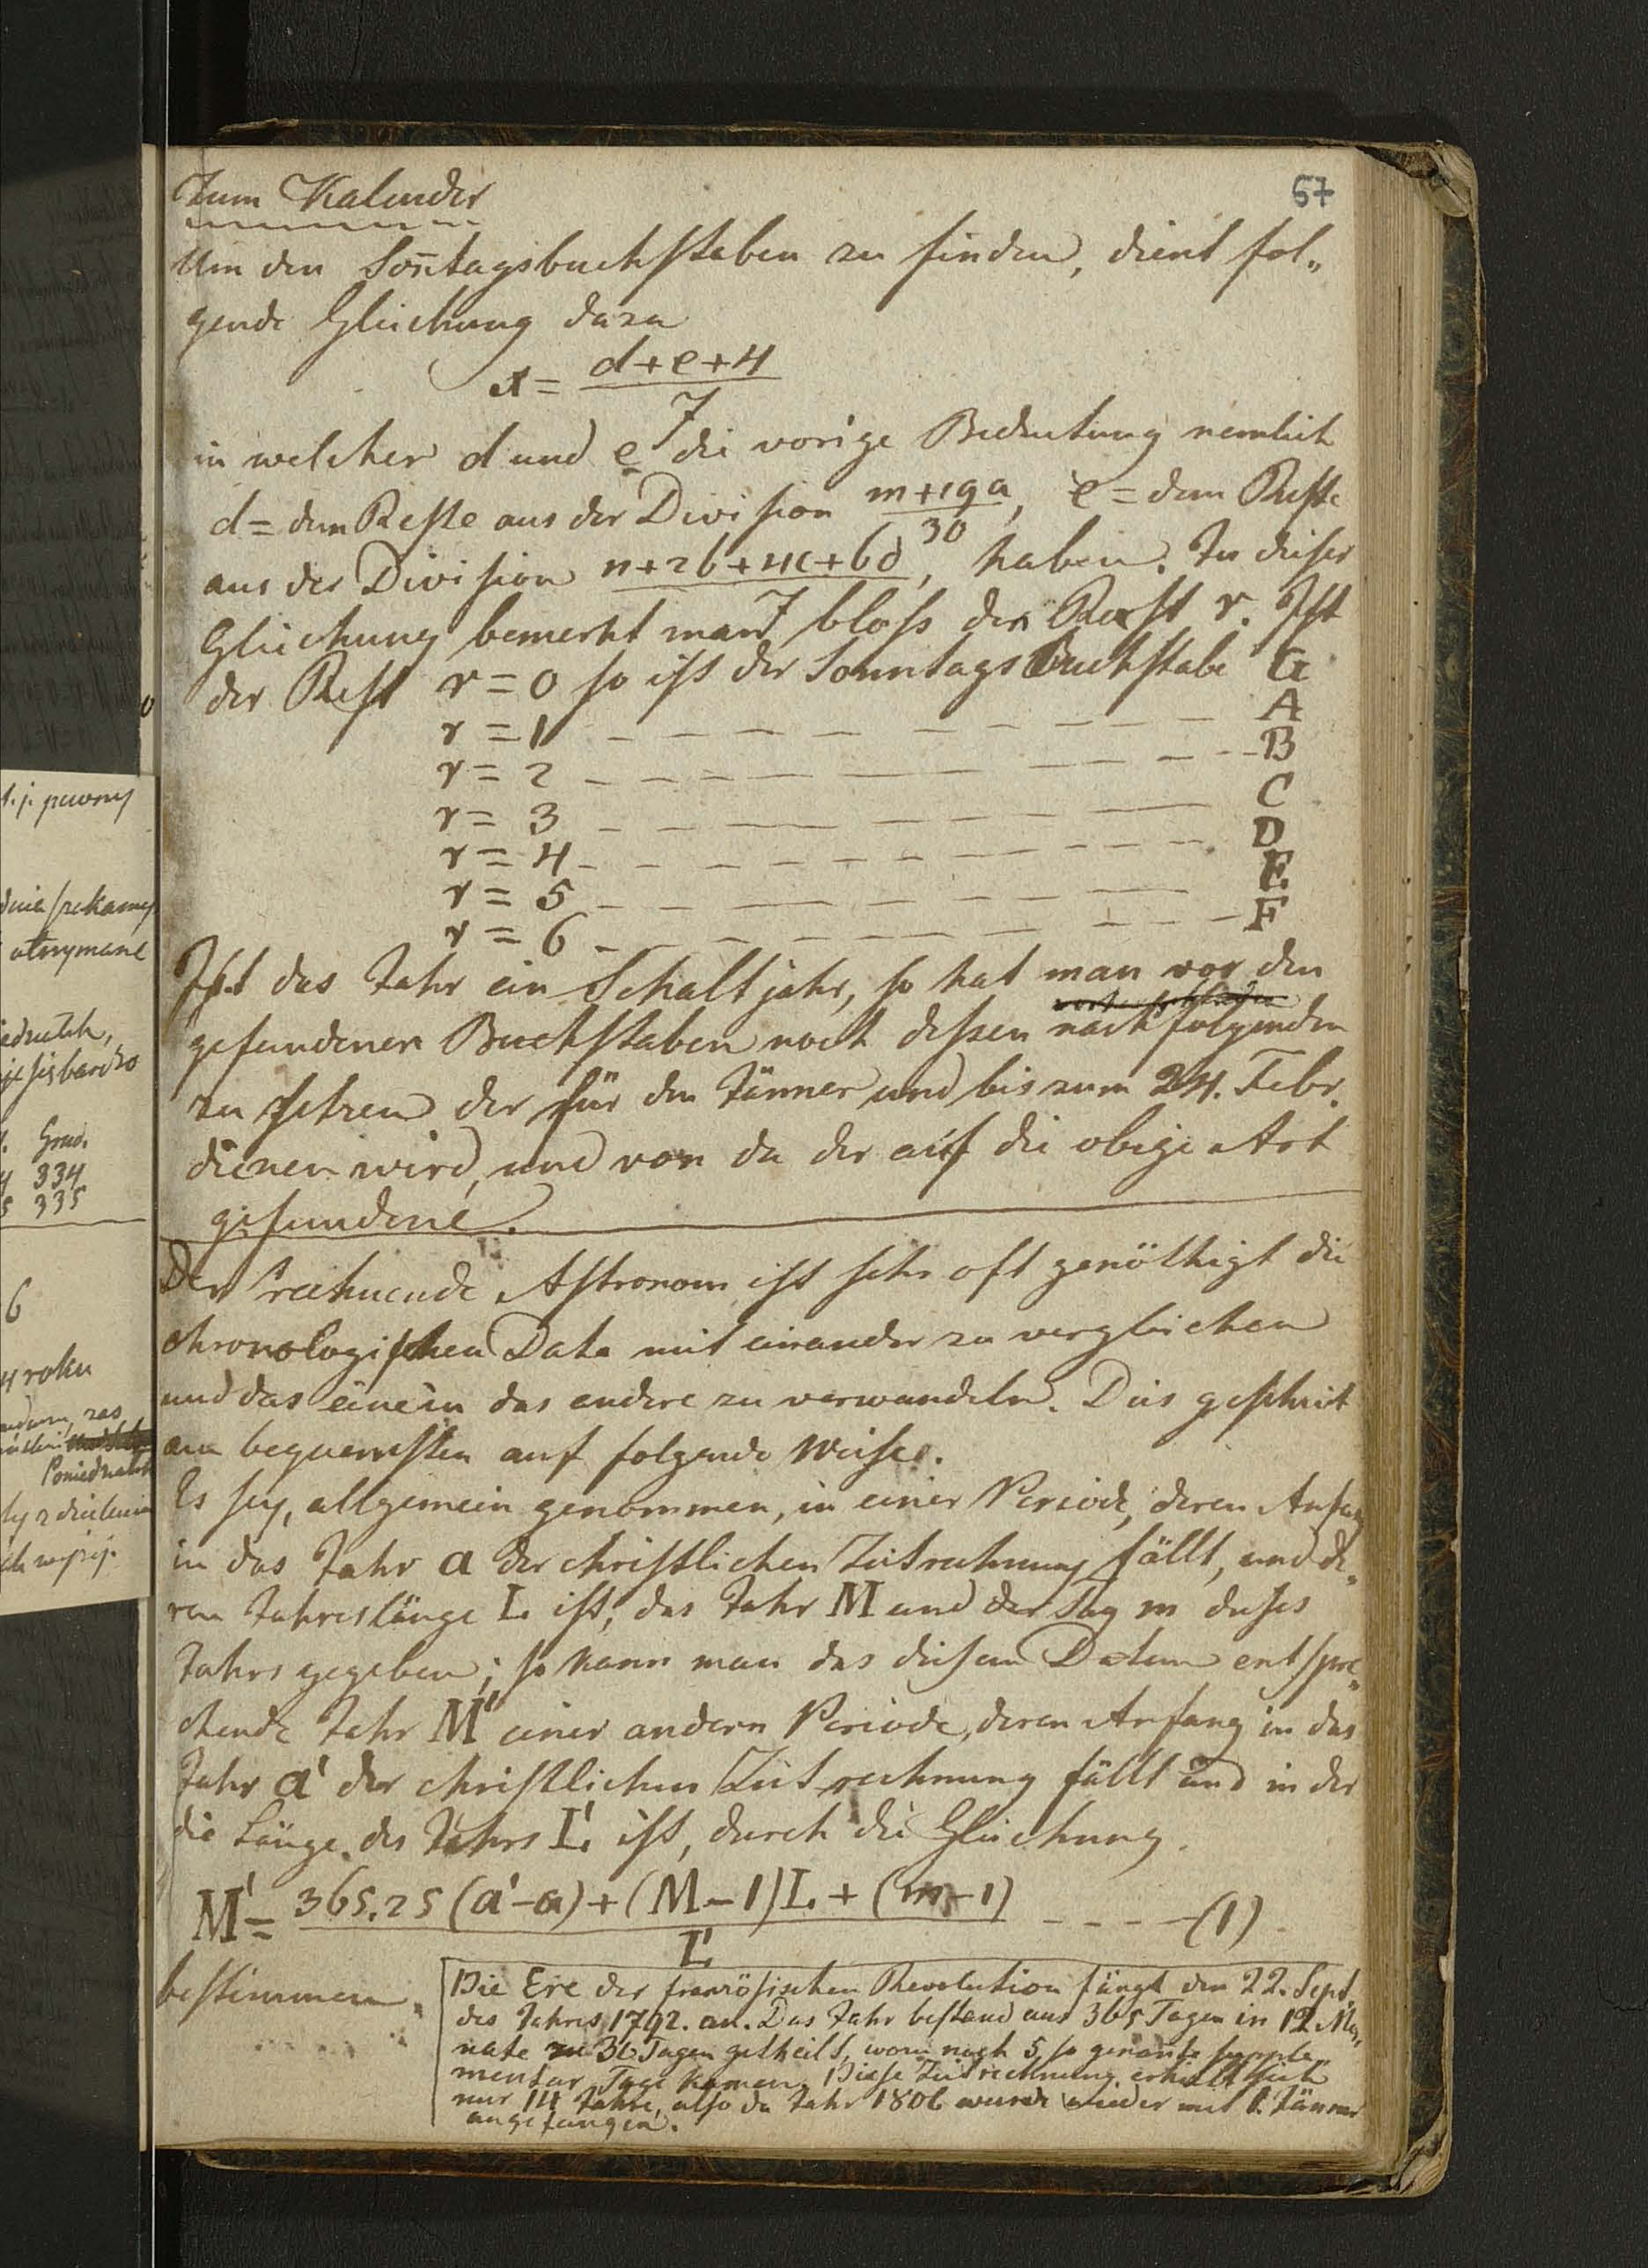 57
Zum Kalender
Um den Son̄tagsbuchstaben zu finden, dient fol„
gende Gleichung dazu
x = (d+e+4)/7
in welcher d und e die vorige Bedeutung nemlich
d = dem Reste aus der Division (m+19a)/30, e = dem Reste
aus der Division (n+2b+4c+6d)/7, haben. In dieser
Gleichung bemerkt man bloss den Rest r. Ist
der Rest r = 0 so ist der Sonntags Buchstabe G
r = 1 – – – – – – – – – A
r = 2 – – – – – – – – – B
r = 3 – – – – – – – – – C
r = 4 – – – – – – – – – D
r = 5 – – – – – – – – – E
r = 6 – – – – – – – – – F
Ist das Jahr ein Schaltjahr, so hat man vor den
gefundenen Buchstaben noch dessen nachfolgenden
zu setzen der für den Jänner und bis zum 24. Febr.
dienen wird, und von da der auf die obige Art
gefundene.
Der rechnende Astronom ist sehr oft genöthigt die
chronologischen Data mit einander zu vergleichen
und das eine in das andere zu verwandeln. Dies geschieht
am bequemsten auf folgende Weise.
Es sey, allgemein genommen, in einer Periode, deren Anfang
in das Jahr a der christlichen Zeitrechnung fällt, und de„
ren Jahreslänge L ist, das Jahr M und der Tag m dieses
Jahrs gegeben; so kann man das diesem Datum entspre„
chende Jahr M' einer andern Periode, deren Anfang in das
Jahr a' der christlichen Zeitrechnung fällt und in der
die Länge des Jahrs L' ist, durch die Gleichung
M' = (365.25 (a'-a) + (M-1)L + (m-1))/L' – – – – (1)
bestimmen.
Die Ere der französischen Revolution fängt den 22. Sept.
des Jahres 1792. an. Das Jahr bestand aus 365 Tagen in 12 Mo„
nate zu 30 Tagen getheilt, worn noch 5 so genante supple„
mentar Tage kamen. Diese Zeitrechnung erhielt sich
nur 14 Jahre, also da Jahr 1806 wurde wieder mit 1. Jänner
angefangen.
t. j. pewny
otrzymane
Grad.
4 334
5 335
6
4 roku
zas